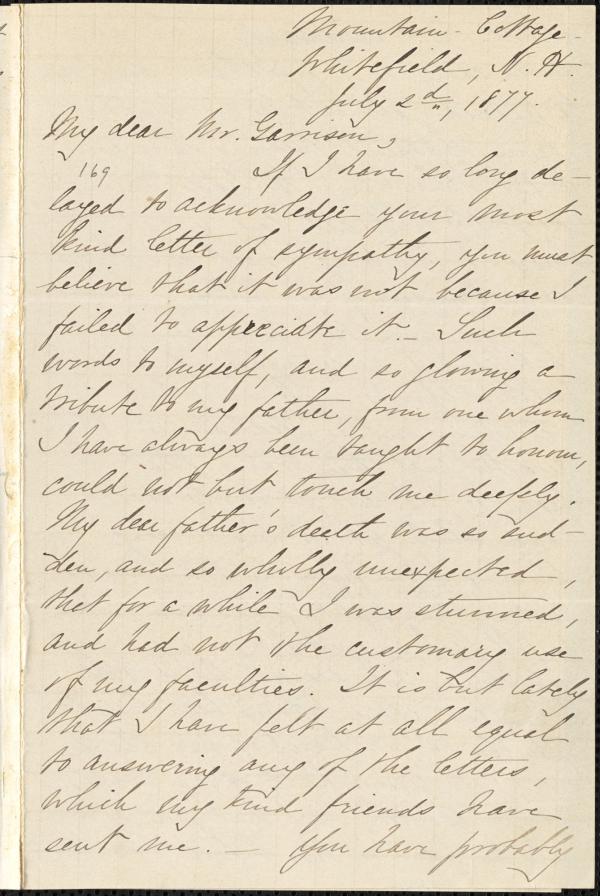 Mountain Cottage
Whitefield, N. H.
July 2d, 1877.
My dear Mr. Garrison,
169
If I have so long de-
layed to acknowledge your most
kind letter of sympathy, you must
believe that it was not because I
failed to appreciate it. - Such
words to myself, and so glowing a
tribute to my father, from one whom
I have always been taught to honour,
could not but touch me deeply.
My dear father's death was so sud-
den, and so wholly unexpected,
that for a while I was stunned,
and had not the customary use
of my faculties. It is but lately
that I have felt at all equal
to answering any of the letters,
which my kind friends have
sent me. - You have probably